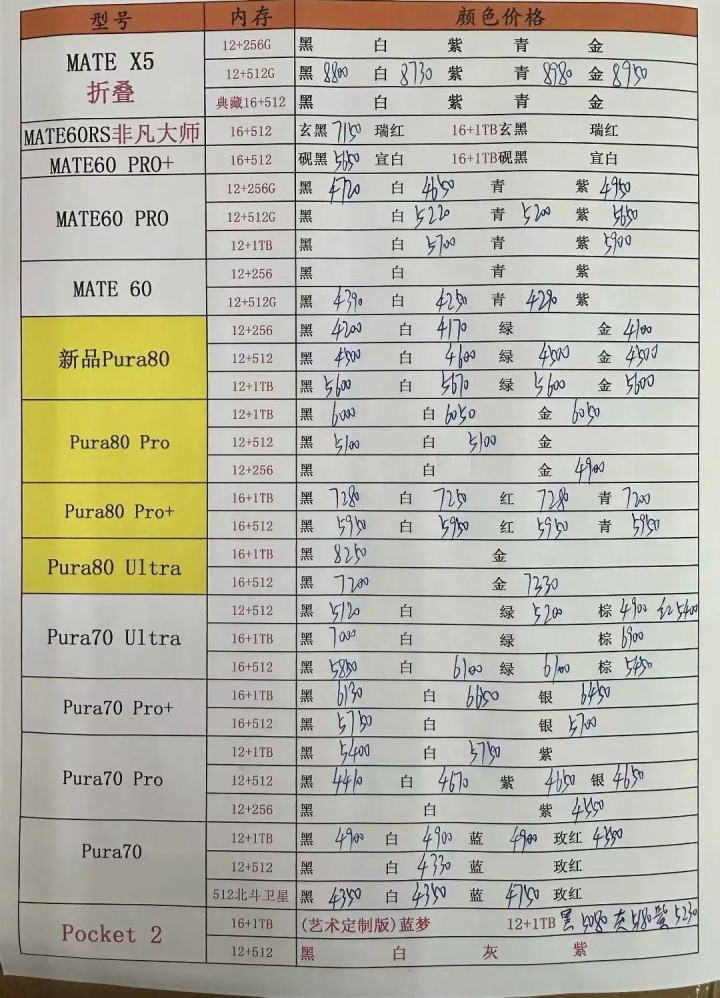 型号 内存 颜色价格
MATE X5 折叠
12+256G 黑 白 紫 青 金
12+512G 黑 8800 白 8730 紫 青 8980 金 8950
典藏16+512 黑 白 紫 青 金
MATE60RS非凡大师 16+512 玄黑 7150 瑞红 16+1TB玄黑 瑞红
MATE60 PRO+ 16+512 砚黑 5650 宣白 16+1TB砚黑 宣白
MATE60 PRO
12+256G 黑 4720 白 4650 青 紫 4950
12+512G 黑 白 5220 青 5200 紫 5650
12+1TB 黑 白 5700 青 紫 5900
MATE 60
12+256 黑 白 青 紫
12+512G 黑 4390 白 4250 青 4290 紫
新品Pura80
12+256 黑 4200 白 4170 绿 金 4100
12+512 黑 4500 白 4600 绿 4500 金 4500
12+1TB 黑 5600 白 5670 绿 5600 金 5600
Pura80 Pro
12+1TB 黑 6000 白 6050 金 6050
12+512 黑 5100 白 5100 金
12+256 黑 白 金 4900
Pura80 Pro+
16+1TB 黑 7280 白 7250 红 7280 青 7200
16+512 黑 5950 白 5950 红 5950 青 5950
Pura80 Ultra
16+1TB 黑 8250 金
16+512 黑 7200 金 7330
Pura70 Ultra
12+512 黑 5120 白 绿 5200 棕 4900 红 5400
16+1TB 黑 7000 白 绿 棕 6900
16+512 黑 5850 白 6100 绿 6100 棕 5450
Pura70 Pro+
16+1TB 黑 6130 白 6650 银 6450
16+512 黑 5750 白 银 5700
Pura70 Pro
12+1TB 黑 5400 白 5750 紫
12+512 黑 4410 白 4670 紫 4650 银 4650
12+256 黑 白 紫 4550
Pura70
12+1TB 黑 4900 白 4900 蓝 4900 玫红 4550
12+512 黑 白 4330 蓝 玫红
512北斗卫星 黑 4350 白 4350 蓝 4750 玫红
Pocket 2
16+1TB (艺术定制版)蓝梦 12+1TB 黑 5080 灰 5180 紫 5230
12+512 黑 白 灰 紫